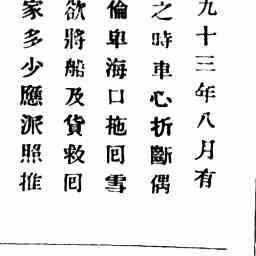 九十三年八月有
之時車心折斷偶
倫卑海口拖囘雪
欲將船及貨救囘
家多少應派照推